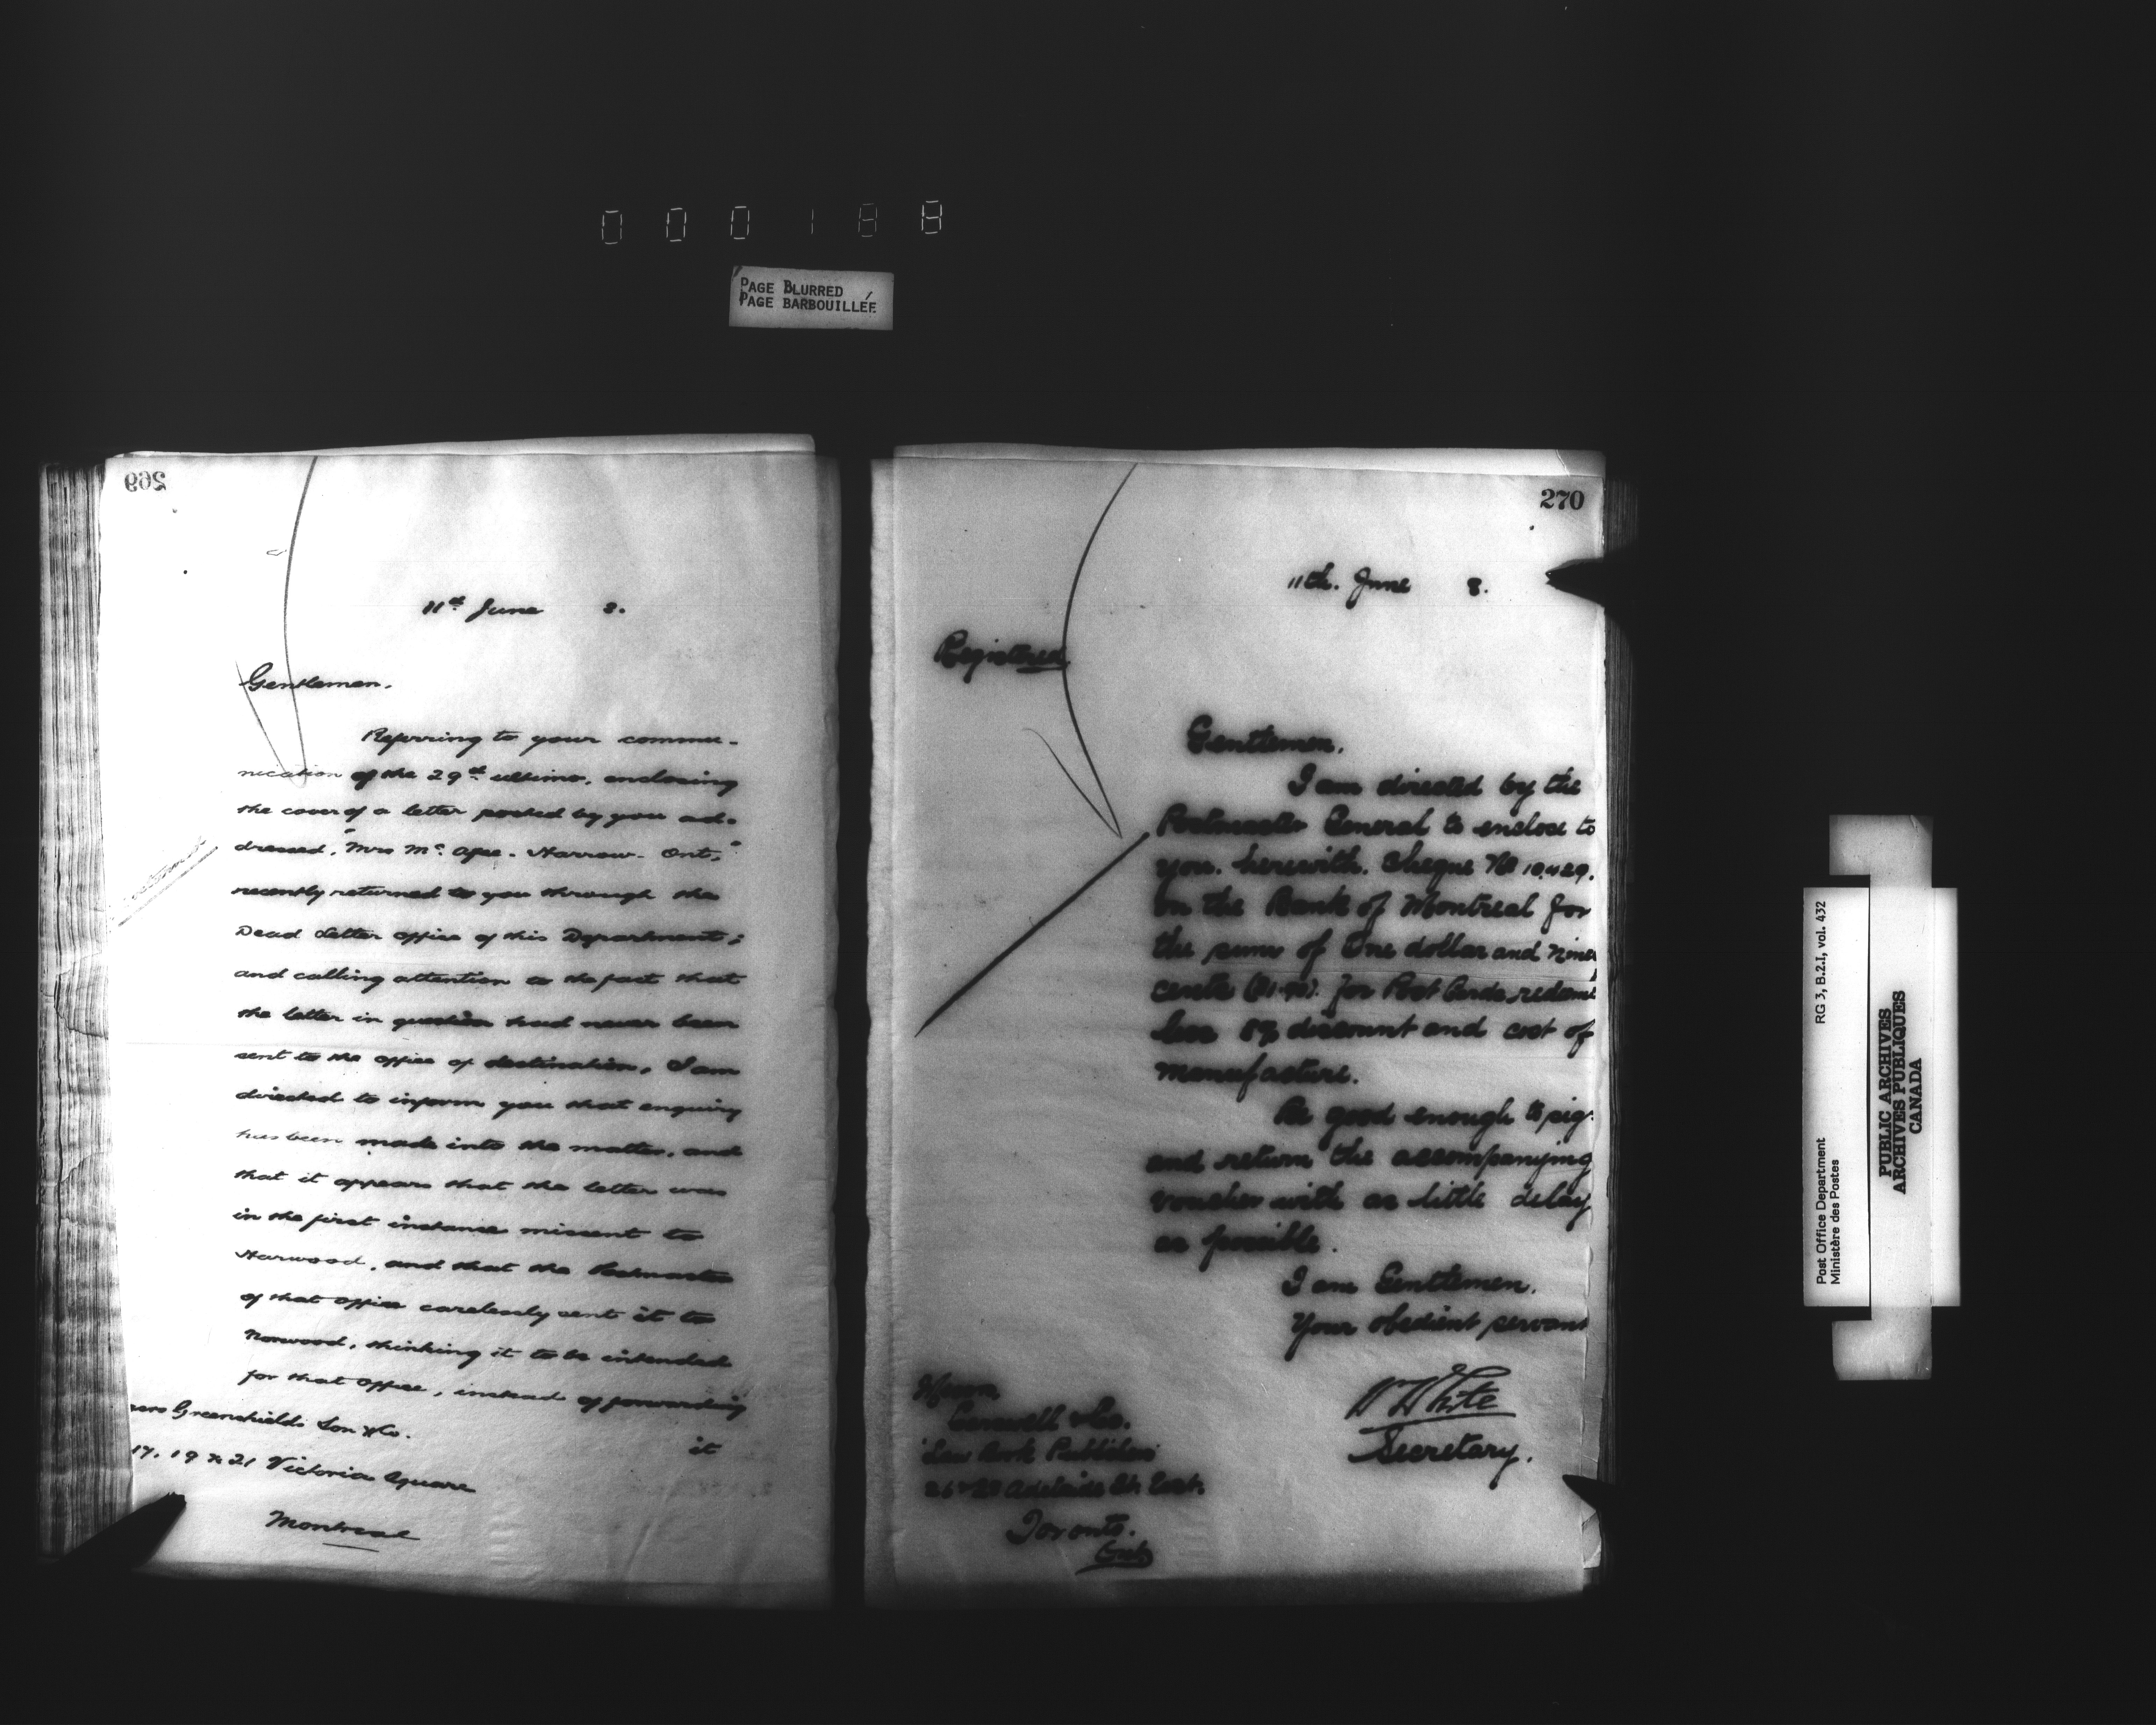 000188
PAGE BLURRED
PAGE BARBOUILLÉE
269
11th June 8.
Gentlemen.
Referring to your commu-
nication of the 29th ultimo, enclosing
the cover of a letter posted by you ad-
dressed, "Mrs Mc Afee. Harrow. Ont,"
recently returned to you through the
Dead Letter Office of this Department;
and calling attention to the fact that
the letter in question had never been
sent to the office of destination, I am
directed to inform you that enquiry
has been made into the matter, and
that it appears that the letter was
in the first instance missent to
Harwood, and that the Postmaster
of that office carelessly sent it to
Norwood, thinking it to be intended
for that Office, instead of forwarding
it
Greenshields Son & Co.
17, 19 & 21 Victoria Square
Montreal
270
11th. June 8.
Registered
Gentlemen,
I am directed by the
Postmaster General to enclose to
you. herewith. Cheque No 10429.
on the Bank of Montreal for
the sum of One dollar and
cents for Post Cards
less discount and cost of
manufacture.
Be good enough to sig
and return the accompanying
voucher with as little delay
as possible.
I am Gentlemen.
Your obedient servant
W White
Secretary.
Messrs
& Co.
Law Book Publishers
26 & 28 Adelaide St. East.
Toronto.
Ont
Post Office Department
Ministère des Postes
RG 3, B.2.I, vol. 432
PUBLIC ARCHIVES
ARCHIVES PUBLIQUES
CANADA